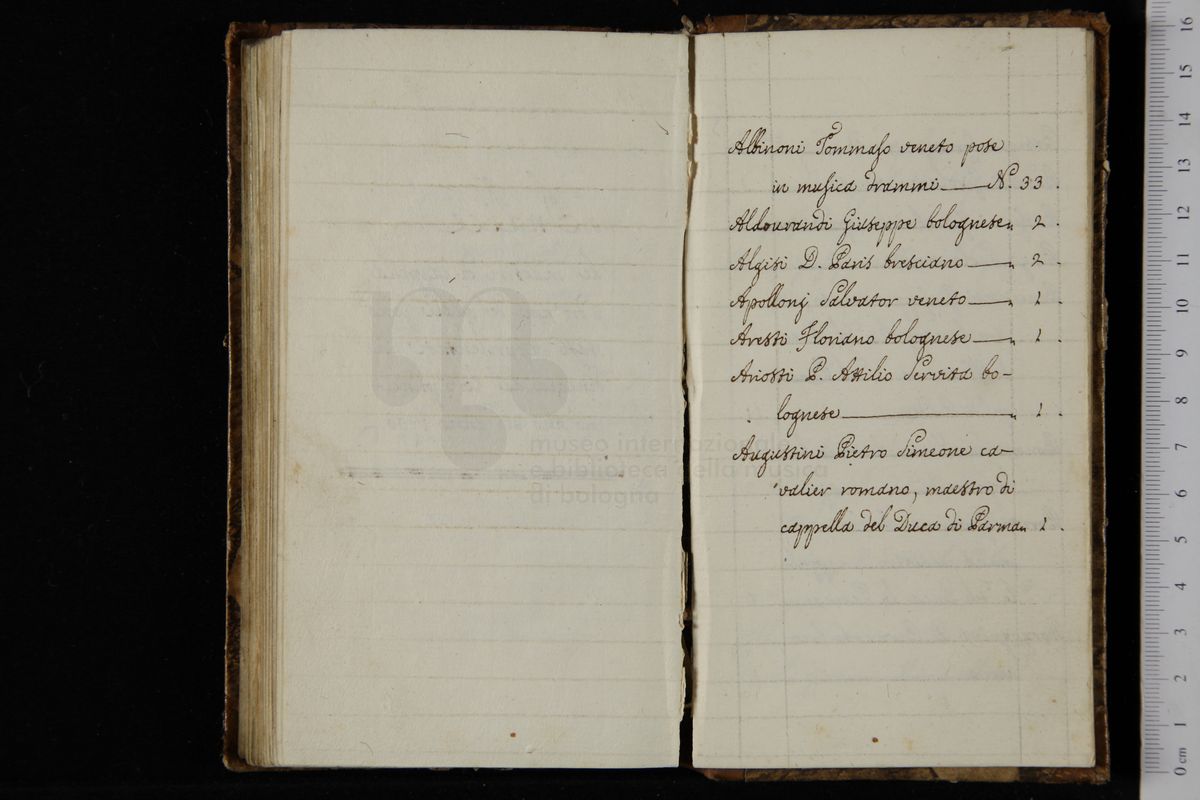 Albinoni Tommaso veneto pose
in musica drammi N.º 33.
Aldourandi Giuseppe bolognese „ 2.
Algisi D. Paris bresciano „ 2.
Apollonj Salvator veneto „ 1.
Aresti Floriano bolognese „ 1.
Ariosti P. Attilio Servita bo-
lognese „ 1.
Augustini Pietro Simeone ca-
valier romano, maestro di
cappella del Duca di Parma „ 1.
museo internazionale
e biblioteca della musica
di bologna
16
15
14
13
12
11
10
9
8
7
6
5
4
3
2
1
0 cm